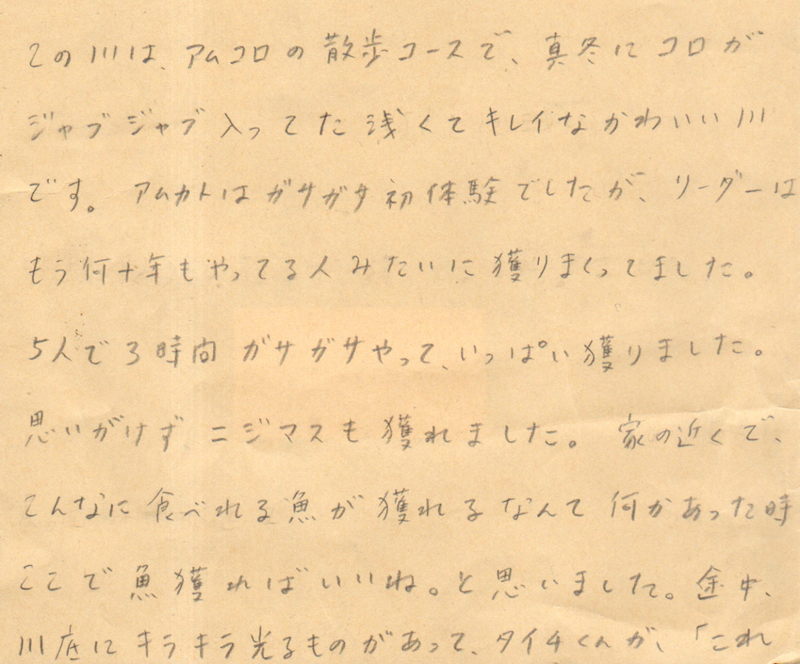 この川は、アムコロの散歩コースで、真冬にコロが
ジャブジャブ入ってた浅くてキレイなかわいい川
です。アムカトはガサガサ初体験でしたが、リーダーは
もう何十年もやってる人みたいに獲りまくってました。
5人で3時間ガサガサやって、いっぱい獲りました。
思いがけずニジマスも獲れました。家の近くで、
こんなに食べれる魚が獲れるなんて何かあった時
ここで魚獲ればいいね。と思いました。途中、
川底にキラキラ光るものがあって、タイチくんが、「これ